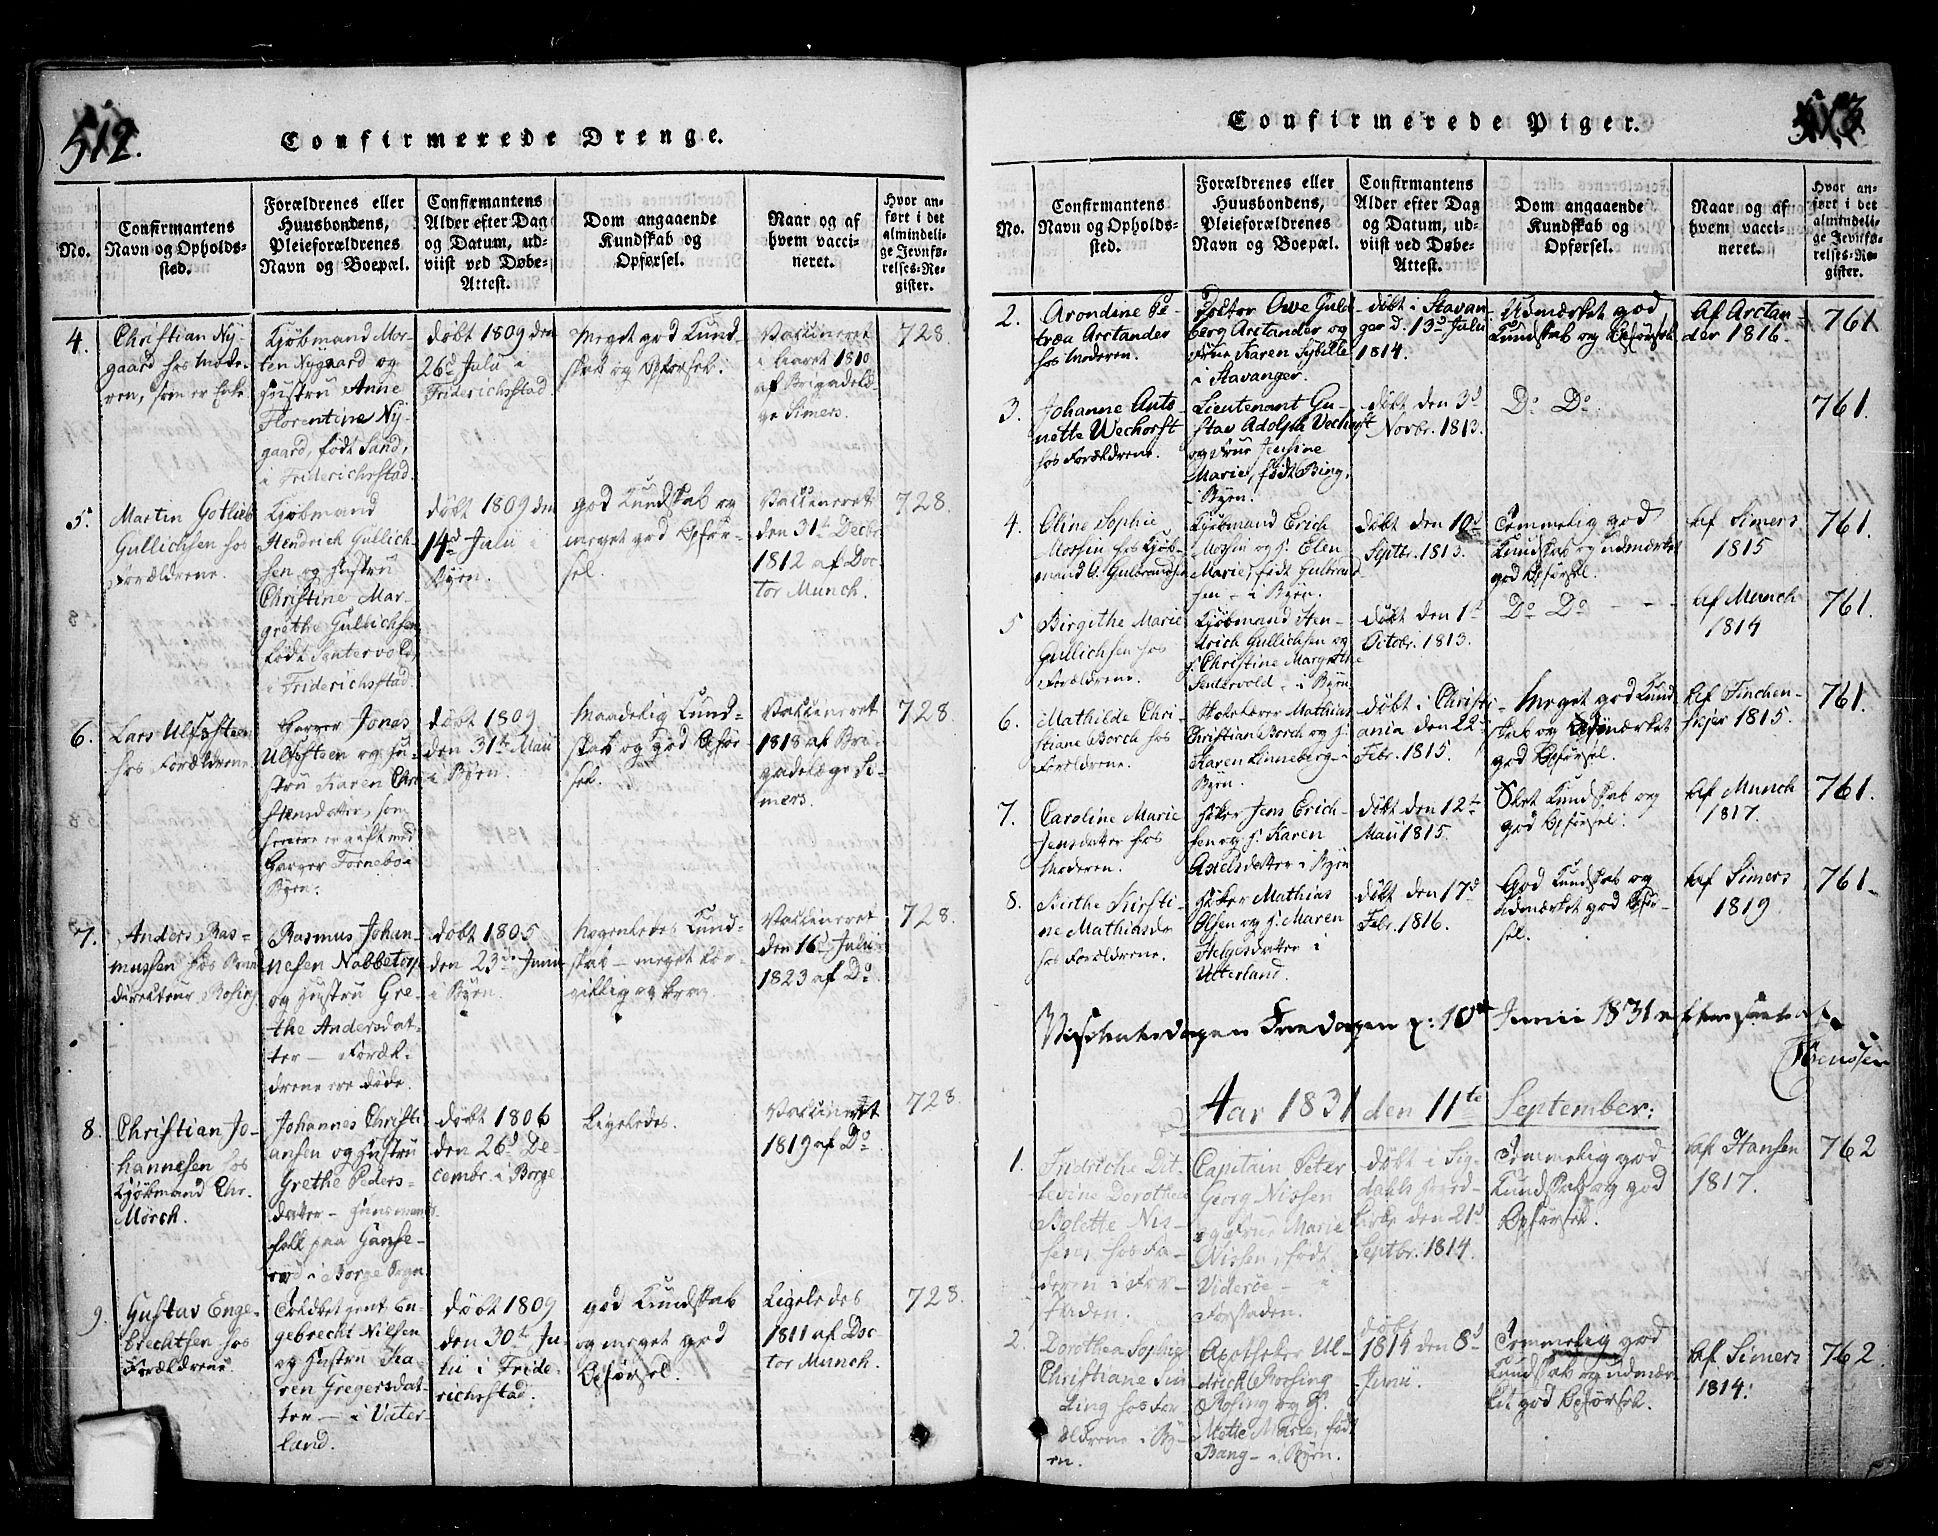 512.
Confirmerede Drenge.
No.
Confirmantens
Navn og Opholds-
sted.
Forældrenes eller
Huusbondens,
Pleieforældrenes
Navn og Boepæl.
Confirmantens
Alder efter Dag
og Datum, ud-
viist ved Døbe-
Attest.
Dom angaaende
Kundskab og
Opførsel.
Naar og af
hvem vacci-
neret.
Hvor an-
ført i det
almindeli-
ge Jevnfø-
relses-Re-
gister.
4.
Christian Ny-
gaard hos Mode-
ren, som er Enke
Kjøbmand Mor-
ten Nygaard og
Hustru Anne
Florentine Ny-
gaard, født Sand,
i Friderichsstad.
døbt 1809 den
26d Julii i
Friderichsstad.
Meget god Kund-
skab og Opførsel.
Vaccineret
i Aaret 1810
af Brigadelæ-
ge Simers.
728.
5.
Martin Gotlieb
Gullichsen hos
Forældrene.
Kjøbmand
Hendrich Gullich-
sen og Hustru
Christine Mar-
grethe Gullichsen
født Sentervold,
i Friderichsstad.
døbt 1809 den
14d Julii i
Byen.
god Kundskab og
meget god Opfør-
sel.
Vaccineret
den 31te Decbr
1812 af Doc-
tor Munch.
728.
6.
Lars Ulfssteen
hos Forældrene.
Borger Jonas
Ulfssteen og Hu-
stru Karen Chri-
stensdatter, som
er gift med
Borger Fornebo i
Byen.
døbt 1809
den 31te Maii
i Byen.
Maadelig Kund-
skab og god Opfør-
sel.
Vaccineret
1818 af Bri-
gadelæge Si-
mers.
728.
7.
Anders Ras-
mussen hos
directeur Rosing
Rasmus Johan-
nesen Nabbetorp
og Hustru Gre-
the Andersdat-
ter - Foræl-
drene ere døde.
døbt 1805
den 23de Junii
i Byen.
Nogenledes Kund-
skab - meget
og
Vaccineret
den 16d Julii
1823 af Do.
728.
8.
Christian Jo-
hannesen hos
Kjøbmand Chr.
Mørch.
Johannes Christi-
ansen og Hustru
Grethe Peders-
datter - Huusmands-
folk paa Hanse-
rød i Borge Sogn
døbt 1806
den 26d De-
cembr. i Borge
Ligeledes.
Vaccineret
1819 af Do
728.
9.
Gustav Enge-
brechtsen hos
Forældrene
gent. En-
gebrecht Nilsen
og Hustru Ka-
ren Gregersdat-
ter - i Vater-
land.
døbt 1809
den 30te Ju-
lii i Fride-
richsstad.
god Kundskab
og meget god
Opførsel.
Ligeledes
1811 af Doc
tor Munch.
728.
513
Confirmerede Piger.
No.
Confirmantens
Navn og Opholds-
sted.
Forældrenes eller
Huusbondens,
Pleieforældrenes
Navn og Boepæl.
Confirmantens
Alder efter Dag
og Datum, ud-
viist ved Døbe-
Attest.
Dom angaaende
Kundskab og
Opførsel.
Naar og af
hvem vacci-
neret.
Hvor an-
ført i det
almindeli-
ge Jevnfø-
relses-Re-
gister.
2.
Arondine Pe-
træa Arctander
hos Moderen.
Doctor Owe Guld-
berg Arctander og
Frue Karen Sybille
i Stavanger.
døbt i Stavan-
ger d. 13d Julii
1814.
Udmærket god
Kundskab og Opførsel.
Af Arctan-
der 1816.
761
3.
Johanne Anto-
nette Wechorst
hos Forældrene.
Lieutenant Gu-
stav Adolph Vechorst
og Frue Jensine
Marie, født Bing,
i Byen.
døbt den 3d
Novbr. 1813.
Do Do.
761.
4.
Eline Sophie
Mossin hos Kjøb-
mand G. Gulbrandsen
Kjøbmand Erich
Mossin og H. Elen
Marie, født Gulbrand-
sen - i Byen.
døbt den 10d
Septbr. 1813.
Temmelig god
Kundskab og udmærket
god Opførsel.
Af Simers
1815
761.
5
Birgithe Marie
Gullichsen hos
Forældrene.
Kjøbmand Hen-
drich Gullichsen og
H. Christine Margrethe
Sentervold - i Byen
døbt den 1te
Octobr. 1813.
Do Do - - -
Af Munch
1814
761.
6.
Mathilde Chri-
stiane Borch hos
Forældrene.
Mathias
Christian Borch og H.
Karen Linneberg - i
Byen.
døbt i Christi-
ania den 22d
Febr. 1815.
Meget god Kund-
skab og udmærket
god Opførsel.
Af Tinchen-
1815.
761.
7.
Caroline Marie
Jensdatter hos
Moderen.
Jens Erich-
sen og H. Karen
Axelsdatter i Byen
døbt den 12te
Maii 1815.
Slet Kundskab og
god Opførsel.
Af Munch
1817.
761.
8.
Birthe Kirsti-
ne Mathiasda
hos Forældrene.
Mathias
Olsen og H. Maren
Helgesdatter i
Vatterland.
døbt den 17d
Febr. 1816.
God Kundskab og
udmærket god Opfør-
sel.
Af Simers
1819
761.
Visitatsdagen Fredagen d: 10de Junii 1831 efterseet af
Sørenssen
Aar 1831 den 11te September:
1.
Fridriche Dit-
levine Dorothea
Bolette Nis-
sen, hos Fa-
deren i For-
staden.
Capitain Peter
Georg Nissen
og Frue Marie
Nissen, født
Videröe - i
Forstaden.
døbt i Sig-
dahls
Kirke den 21d
Septbr. 1814.
Temmelig god
Kundskab og god
Opførsel.
Af Hansen
1817.
762
2.
Dorothea Sophie
Christiane
hos For-
ældrene i By-
en.
Apotheker Ul-
drich Rosing
Rosing og F.
Mette Marie, född
Bang - i Byen.
døbt
1814 den 8d
Junii.
Temmelig god
Kundskab og udmær-
ket god Opførsel.
Af Simers
1814.
762.